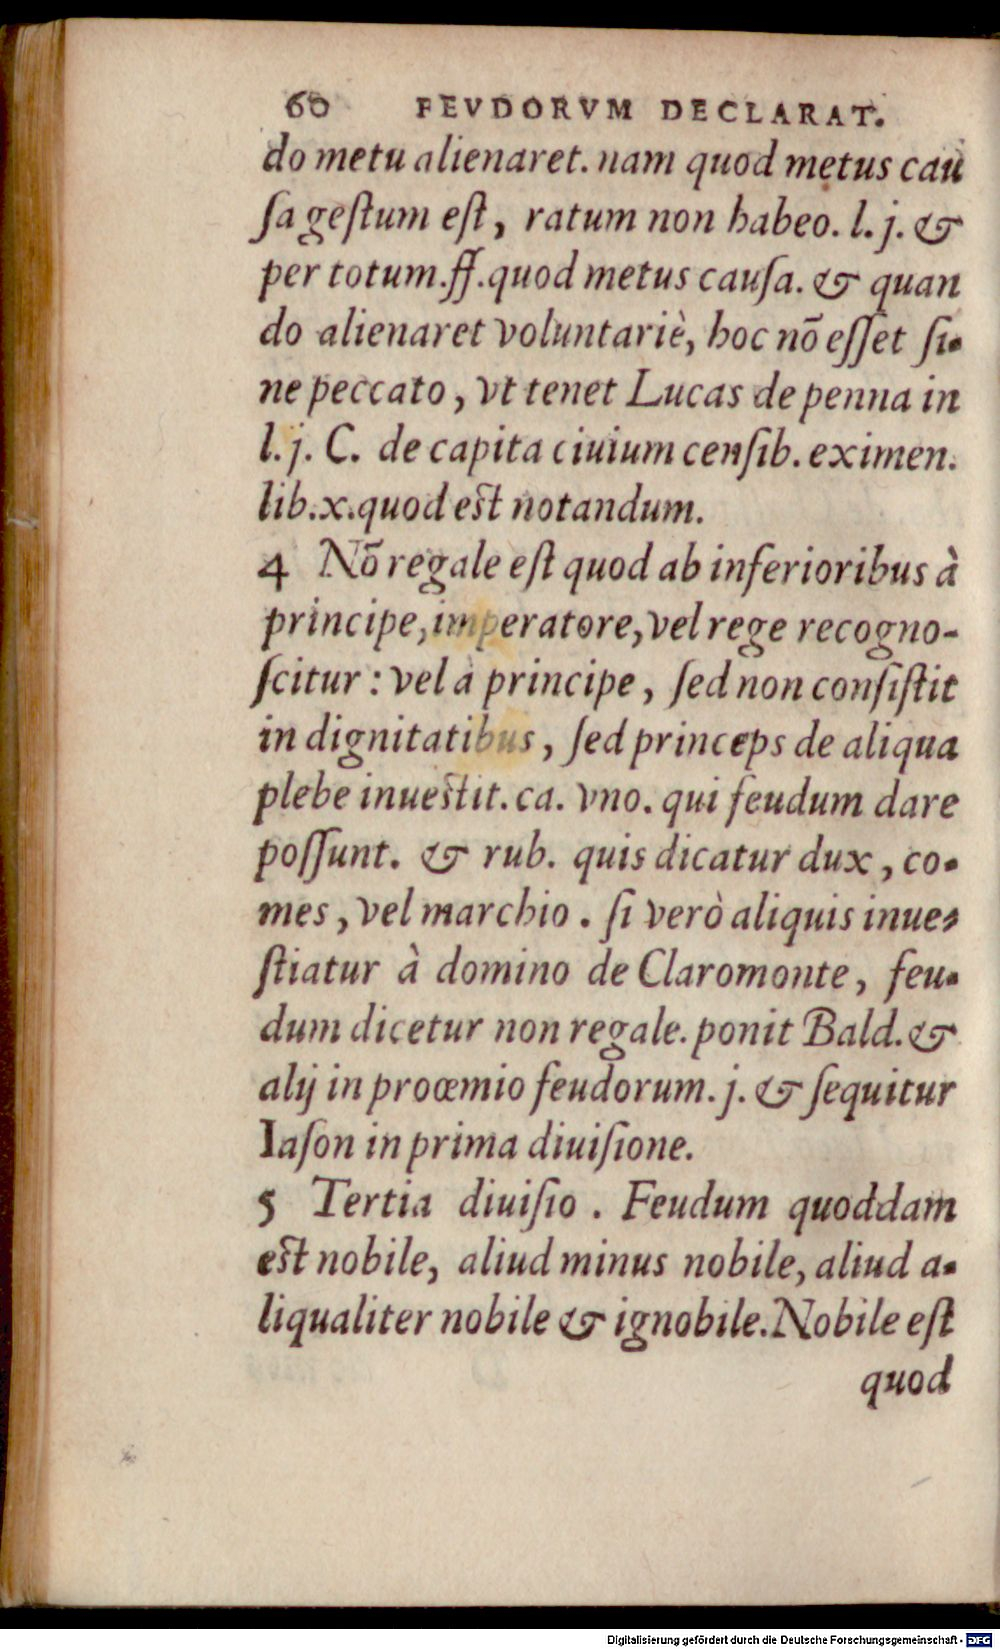 60 FEVDORVM DECLARAT.
do metu alienaret. nam quod metus cau
ſa geſtum eſt, ratum non habeo. l. j. &
per totum. ff. quod metus cauſa. & quan
do alienaret voluntariè, hoc nō eſſet ſi-
ne peccato, vt tenet Lucas de penna in
l. j. C. de capita ciuium cenſib. eximen.
lib. x. quod est notandum.
4 Nō regale eſt quod ab inferioribus à
principe, imperatore, vel rege recogno-
ſcitur : vel à principe, ſed non conſiſtit
in dignitatibus, ſed princeps de aliqua
plebe inuestit. ca. vno. qui feudum dare
poſſunt. & rub. quis dicatur dux, co-
mes, vel marchio. ſi verò aliquis inue-
ſtiatur à domino de Claromonte, feu-
dum dicetur non regale. ponit Bald. &
alij in proœmio feudorum. j. & ſequitur
Iaſon in prima diuiſione.
5 Tertia diuiſio. Feudum quoddam
est nobile, aliud minus nobile, aliud a-
liqualiter nobile & ignobile. Nobile eſt
quod
Digitalisierung gefördert durch die Deutsche Forschungsgemeinschaft - DFG